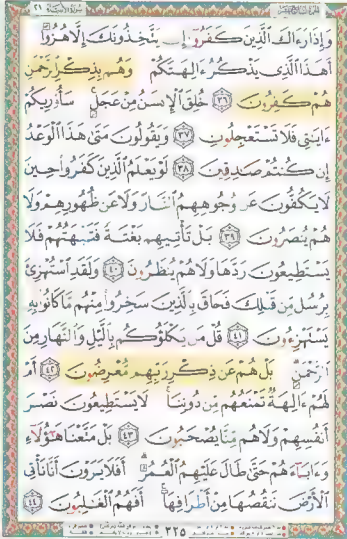 سورة الأنبياء ٢١
وَإِذَا رَءَاكَ ٱلَّذِينَ كَفَرُوٓا۟ إِن يَتَّخِذُونَكَ إِلَّا هُزُوًا
أَهَٰذَا ٱلَّذِى يَذْكُرُ ءَالِهَتَكُمْ وَهُم بِذِكْرِ ٱلرَّحْمَٰنِ
هُمْ كَٰفِرُونَ ٣٦ خُلِقَ ٱلْإِنسَٰنُ مِنْ عَجَلٍ سَأُو۟رِيكُمْ
ءَايَٰتِى فَلَا تَسْتَعْجِلُونِ ٣٧ وَيَقُولُونَ مَتَىٰ هَٰذَا ٱلْوَعْدُ
إِن كُنتُمْ صَٰدِقِينَ ٣٨ لَوْ يَعْلَمُ ٱلَّذِينَ كَفَرُوا۟ حِينَ
لَا يَكُفُّونَ عَن وُجُوهِهِمُ ٱلنَّارَ وَلَا عَن ظُهُورِهِمْ وَلَا
هُمْ يُنصَرُونَ ٣٩ بَلْ تَأْتِيهِم بَغْتَةً فَتَبْهَتُهُمْ فَلَا
يَسْتَطِيعُونَ رَدَّهَا وَلَا هُمْ يُنظَرُونَ ٤٠ وَلَقَدِ ٱسْتُهْزِئَ
بِرُسُلٍ مِّن قَبْلِكَ فَحَاقَ بِٱلَّذِينَ سَخِرُوا۟ مِنْهُم مَّا كَانُوا۟ بِهِۦ
يَسْتَهْزِءُونَ ٤١ قُلْ مَن يَكْلَؤُكُم بِٱلَّيْلِ وَٱلنَّهَارِ مِنَ
ٱلرَّحْمَٰنِ بَلْ هُمْ عَن ذِكْرِ رَبِّهِم مُّعْرِضُونَ ٤٢ أَمْ
لَهُمْ ءَالِهَةٌ تَمْنَعُهُم مِّن دُونِنَا لَا يَسْتَطِيعُونَ نَصْرَ
أَنفُسِهِمْ وَلَا هُم مِّنَّا يُصْحَبُونَ ٤٣ بَلْ مَتَّعْنَا هَٰٓؤُلَآءِ
وَءَابَآءَهُمْ حَتَّىٰ طَالَ عَلَيْهِمُ ٱلْعُمُرُ أَفَلَا يَرَوْنَ أَنَّا نَأْتِى
ٱلْأَرْضَ نَنقُصُهَا مِنْ أَطْرَافِهَآ أَفَهُمُ ٱلْغَٰلِبُونَ ٤٤
٣٢٥